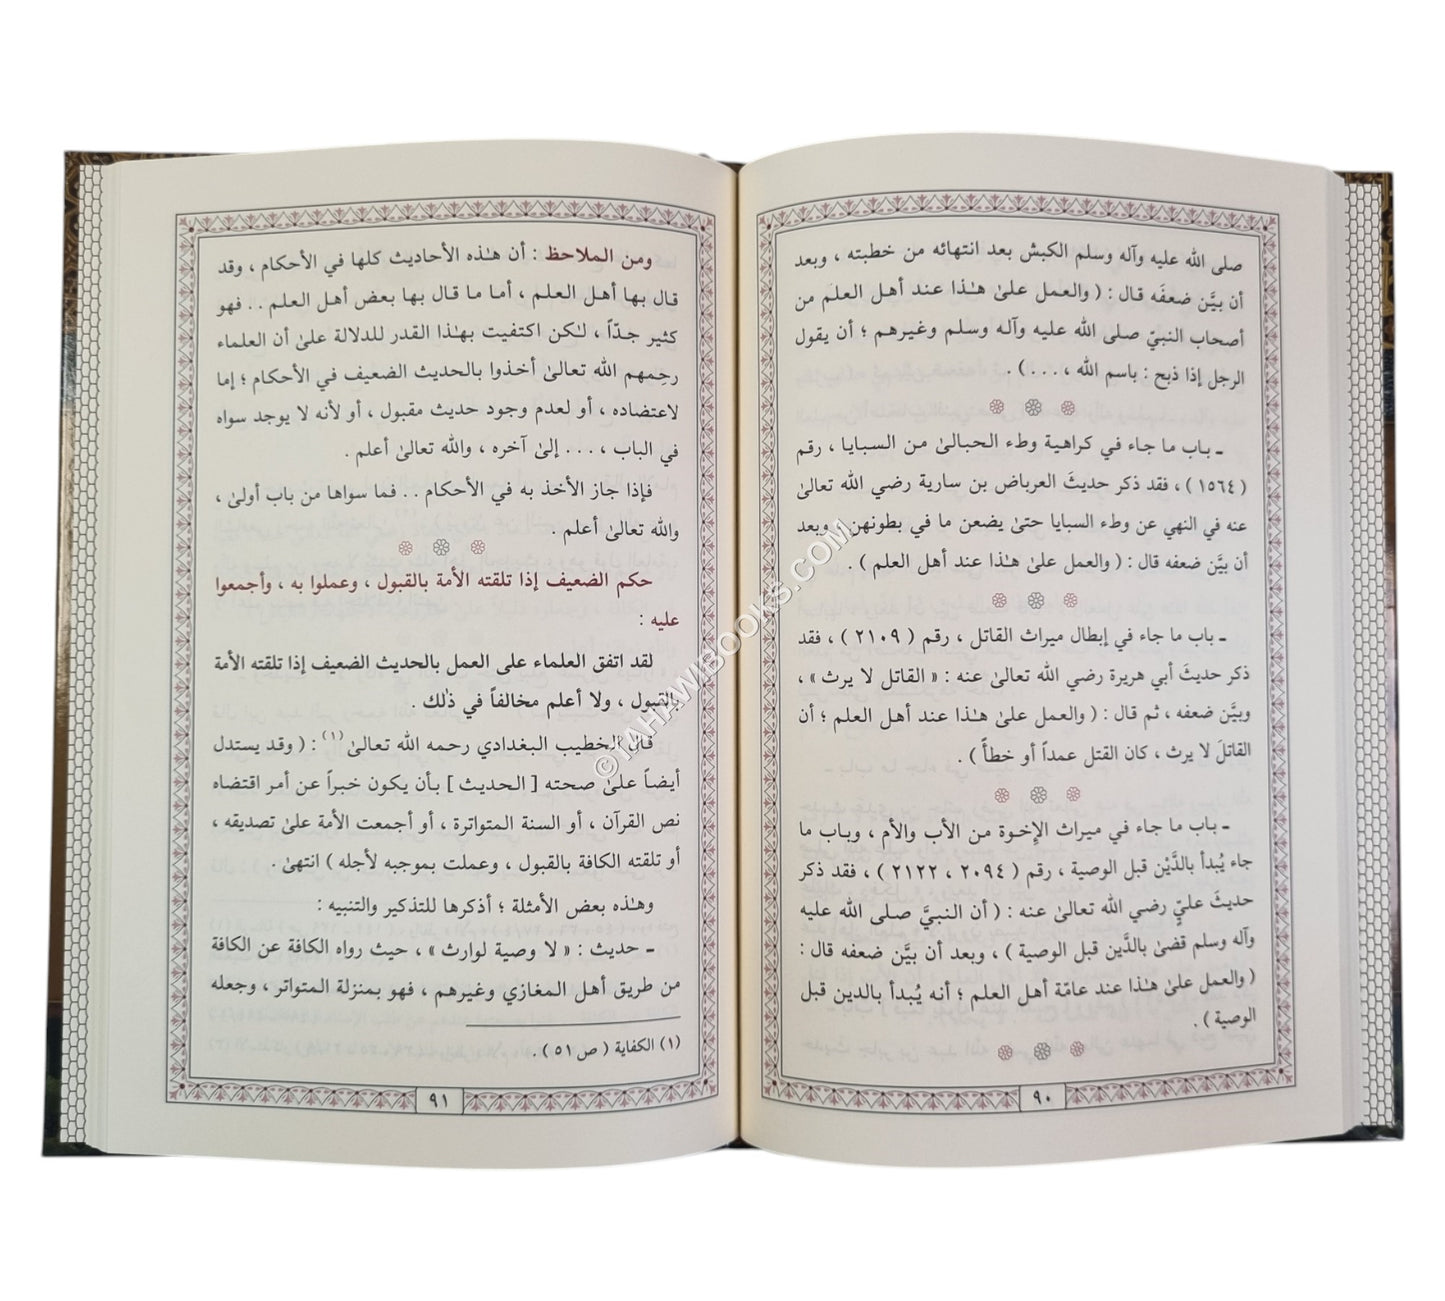 صلى الله عليه وآله وسلم الكبش بعد انتهائه من خطبته ، وبعد
أن بيَّن ضعفَه قال : ( والعمل علىٰ هـٰذا عند أهل العلم من
أصحاب النبيّ صلى الله عليه وآله وسلم وغيرهم ؛ أن يقول
الرجل إذا ذبح : باسم الله ، . . . ) .
ـ باب ما جاء في كراهية وطء الحبالىٰ من السبايا ، رقم
( ١٥٦٤ ) ، فقد ذكر حديثَ العرباض بن سارية رضي الله تعالىٰ
عنه في النهي عن وطء السبايا حتىٰ يضعن ما في بطونهن ، وبعد
أن بيَّن ضعفه قال : ( والعمل علىٰ هـٰذا عند أهل العلم ) .
ـ باب ما جاء في إبطال ميراث القاتل ، رقم ( ٢١٠٩ ) ، فقد
ذكر حديثَ أبي هريرة رضي الله تعالىٰ عنه : « القاتل لا يرث » ،
وبيَّن ضعفه ، ثم قال : ( والعمل علىٰ هـٰذا عند أهل العلم ؛ أن
القاتلَ لا يرث ، كان القتل عمداً أو خطأً ) .
ـ باب ما جاء في ميراث الإخوة من الأب والأم ، وباب ما
جاء يُبدأ بالدَّيْن قبل الوصية ، رقم ( ٢٠٩٤ ، ٢١٢٢ ) ، فقد ذكر
حديثَ عليٍّ رضي الله تعالىٰ عنه : ( أن النبيَّ صلى الله عليه
وآله وسلم قضىٰ بالدَّين قبل الوصية ) ، وبعد أن بيَّن ضعفه قال :
( والعمل علىٰ هـٰذا عند عامّة أهل العلم ؛ أنه يُبدأ بالدين قبل
الوصية ) .
٩٠
ومن الملاحظ : أن هـٰذه الأحاديث كلها في الأحكام ، وقد
قال بها أهل العلم ، أما ما قال بها بعض أهل العلم . . فهو
كثير جدّاً ، لـٰكن اكتفيت بهـٰذا القدر للدلالة علىٰ أن العلماء
رحمهم الله تعالىٰ أخذوا بالحديث الضعيف في الأحكام ؛ إما
لاعتضاده ، أو لعدم وجود حديث مقبول ، أو لأنه لا يوجد سواه
في الباب ، . . . إلىٰ آخره ، والله تعالىٰ أعلم .
فإذا جاز الأخذ به في الأحكام . . فما سواها من باب أولىٰ ،
والله تعالىٰ أعلم .
حكم الضعيف إذا تلقته الأمة بالقبول ، وعملوا به ، وأجمعوا
عليه :
لقد اتفق العلماء على العمل بالحديث الضعيف إذا تلقته الأمة
بالقبول ، ولا أعلم مخالفاً في ذٰلك .
قال الخطيب البغدادي رحمه الله تعالىٰ (١) : ( وقد يستدل
أيضاً علىٰ صحته [ الحديث ] بأن يكون خبراً عن أمر اقتضاه
نص القرآن ، أو السنة المتواترة ، أو أجمعت الأمة علىٰ تصديقه ،
أو تلقته الكافة بالقبول ، وعملت بموجبه لأجله ) انتهىٰ .
وهـٰذه بعض الأمثلة ؛ أذكرها للتذكير والتنبيه :
ـ حديث : « لا وصية لوارث » ، حيث رواه الكافة عن الكافة
من طريق أهل المغازي وغيرهم ، فهو بمنزلة المتواتر ، وجعله
(١) الكفاية ( ص ٥١ ) .
٩١
©TAHAWIBOOKS.COM